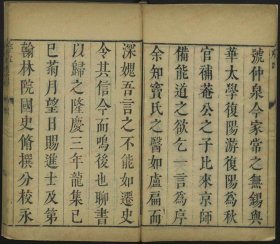 號仲泉今家常之無錫與
華太學復陽游復陽為秋
官補菴公之子比來京師
備能道之欲乞一言為序
余知竇氏之醫如盧扁而
深媿吾言之不能如遷史
令其信今而鳴後也聊書
以歸之隆慶三年龍集己
巳菊月望日賜進士及第
翰林院國史修撰分校永